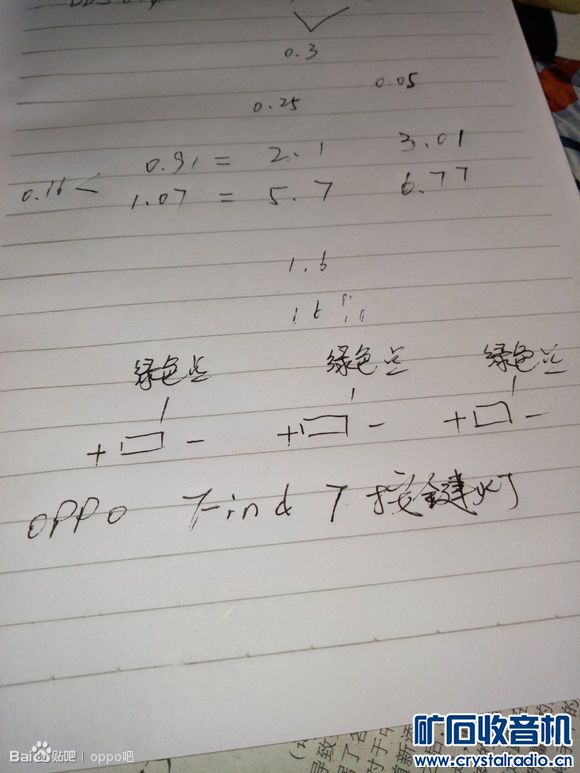 0.3
0.25 0.05
0.16 < 0.91 = 2.1 3.01
1.07 = 5.7 6.77
1.6
绿色点 绿色点 绿色点
+ - + - + -
OPPO Find 7 按键灯
Baidu贴吧 | oppo吧
矿石收音机
www.crystalradio.cn